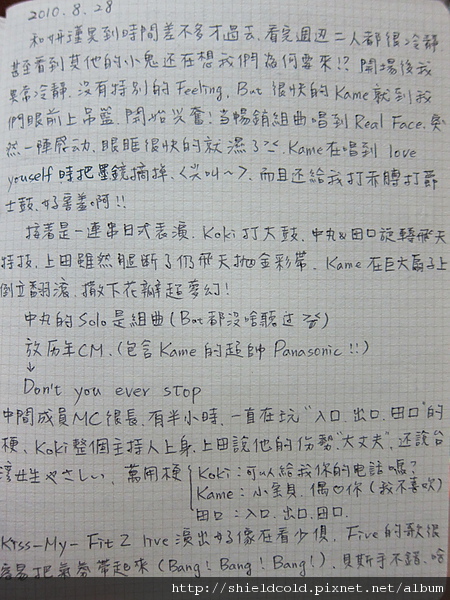 2010.8.28
和妍瑾晃到時間差不多才過去,看完週边二人都很冷靜
甚至看到其他的小鬼还在想我們为何要來!? 開場後我
異常冷靜,沒有特別的Feeling, But 很快的Kame就到我
們眼前上吊籃,開始兴奮!当暢銷組曲唱到Real Face,突
然一陣感动,眼眶很快的就濕了><,Kame在唱到 love
youself 時把墨鏡摘掉,<尖叫~>,而且还給我打赤膊打爵
士鼓,好害羞啊!!
接著是一連串日式表演,Koki打大鼓,中丸&田口旋轉飛天
特技,上田雖然腿斷了仍飛天拋金彩帶,Kame在巨大扇子上
倒立翻滾,撒下花瓣超夢幻!
中丸的Solo是組曲(But都沒啥聽过><)
放历年CM,(包含Kame的超帥Panasonic!!)
↓
Don't you ever stop
中間成員MC很長,有半小時,一直在玩"入口,出口,田口"的
梗,Koki整個主持人上身,上田說他的伤勢"大丈夫",还說台
湾女生やさしい,萬用梗
Koki:可以給我你的電話嗎?
Kame:小宝貝,偶♡你(我不喜歡)
田口:入口,出口,田口,
Kiss-My-Fit2 live演出好像在看少俱,Five的歌很
容易把氣氛帶起來(Bang! Bang! Bang!),貝斯手不錯,啥
http://shieldcold.pixnet.net/album